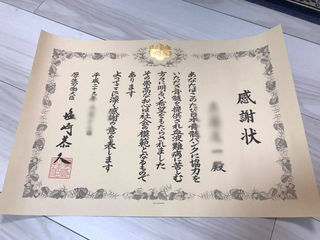 感謝状
一殿
あなたはこのたび日本骨髄バンクに協力を
いただき骨髄を提供され血液難病に苦しむ
方々に明るい希望をもたらされました
その崇高なお心は社会の模範となるもので
あります
よってここに深く感謝の意を表します
平成二十九年
厚生労働大臣
塩崎恭久